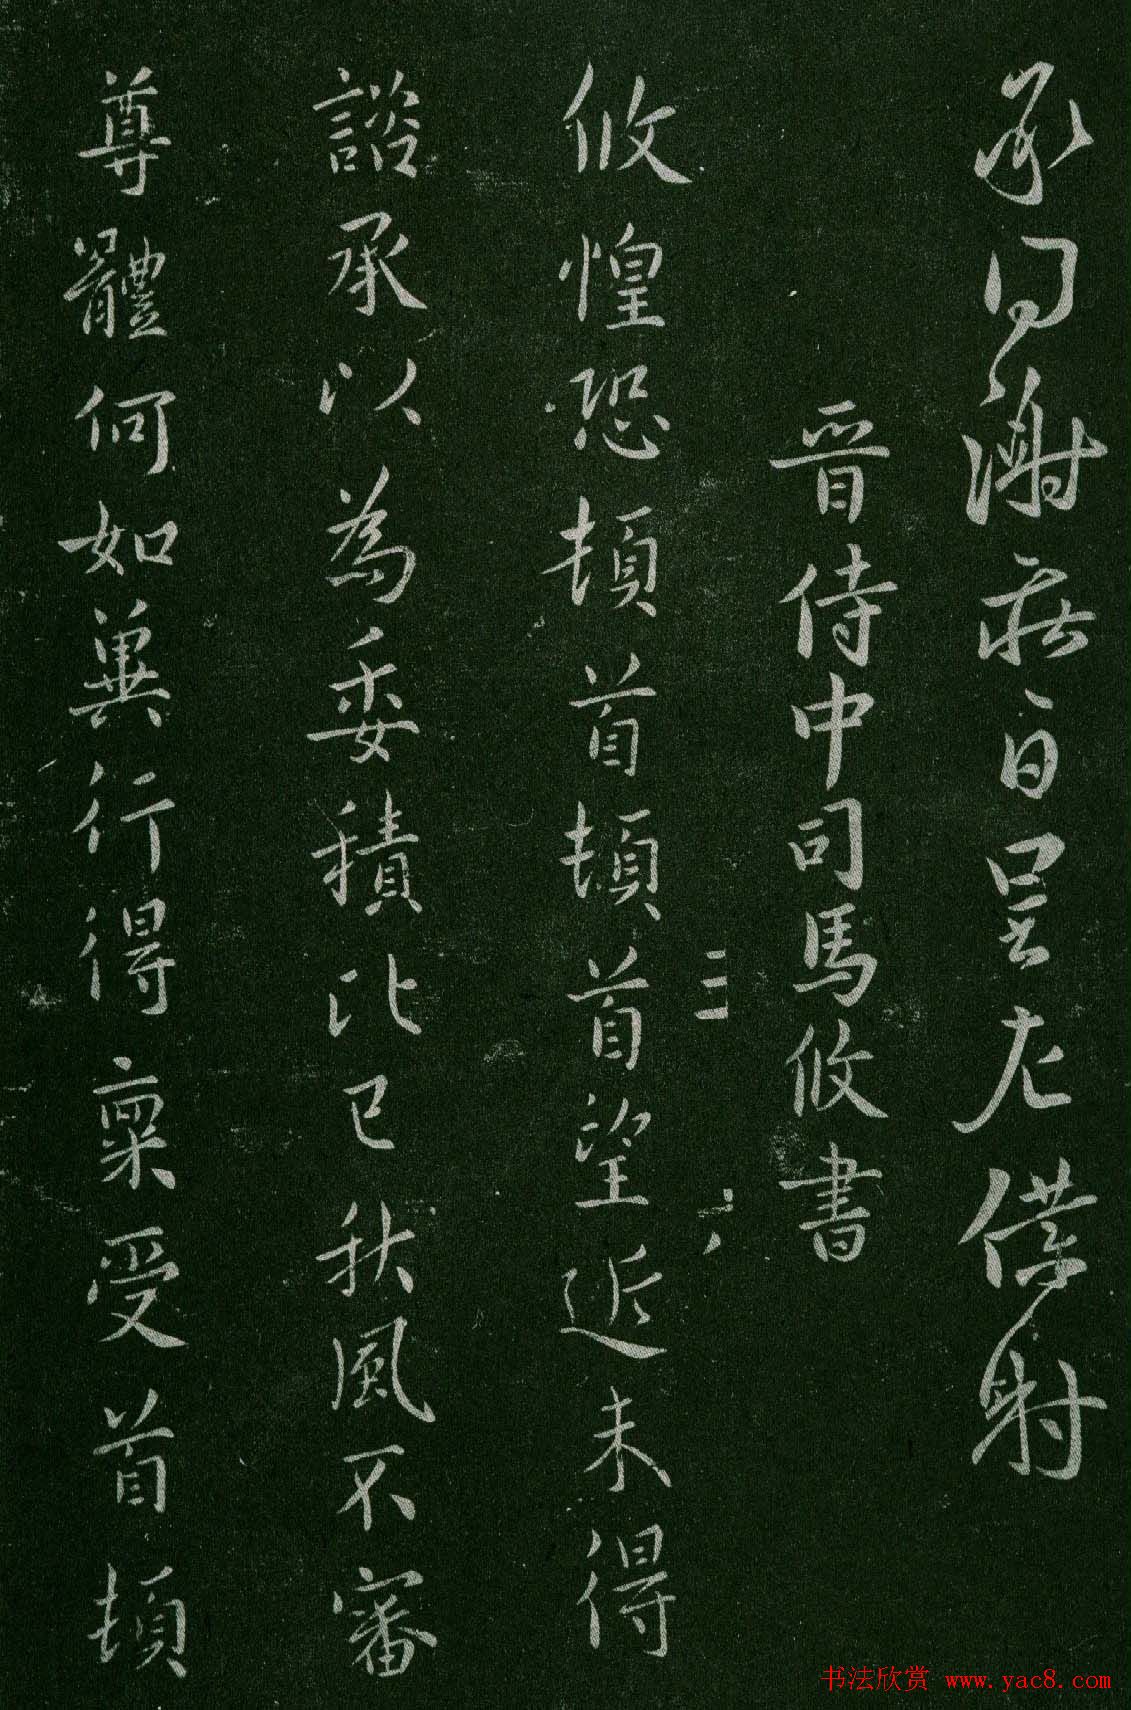 承問謝莊白呈左僕射
晉侍中司馬攸書
攸惶恐頓首頓首望近未得
諮承以為委積比已秋風不審
尊體何如冀行得稟受首頓
书法欣赏 www.yac8.com